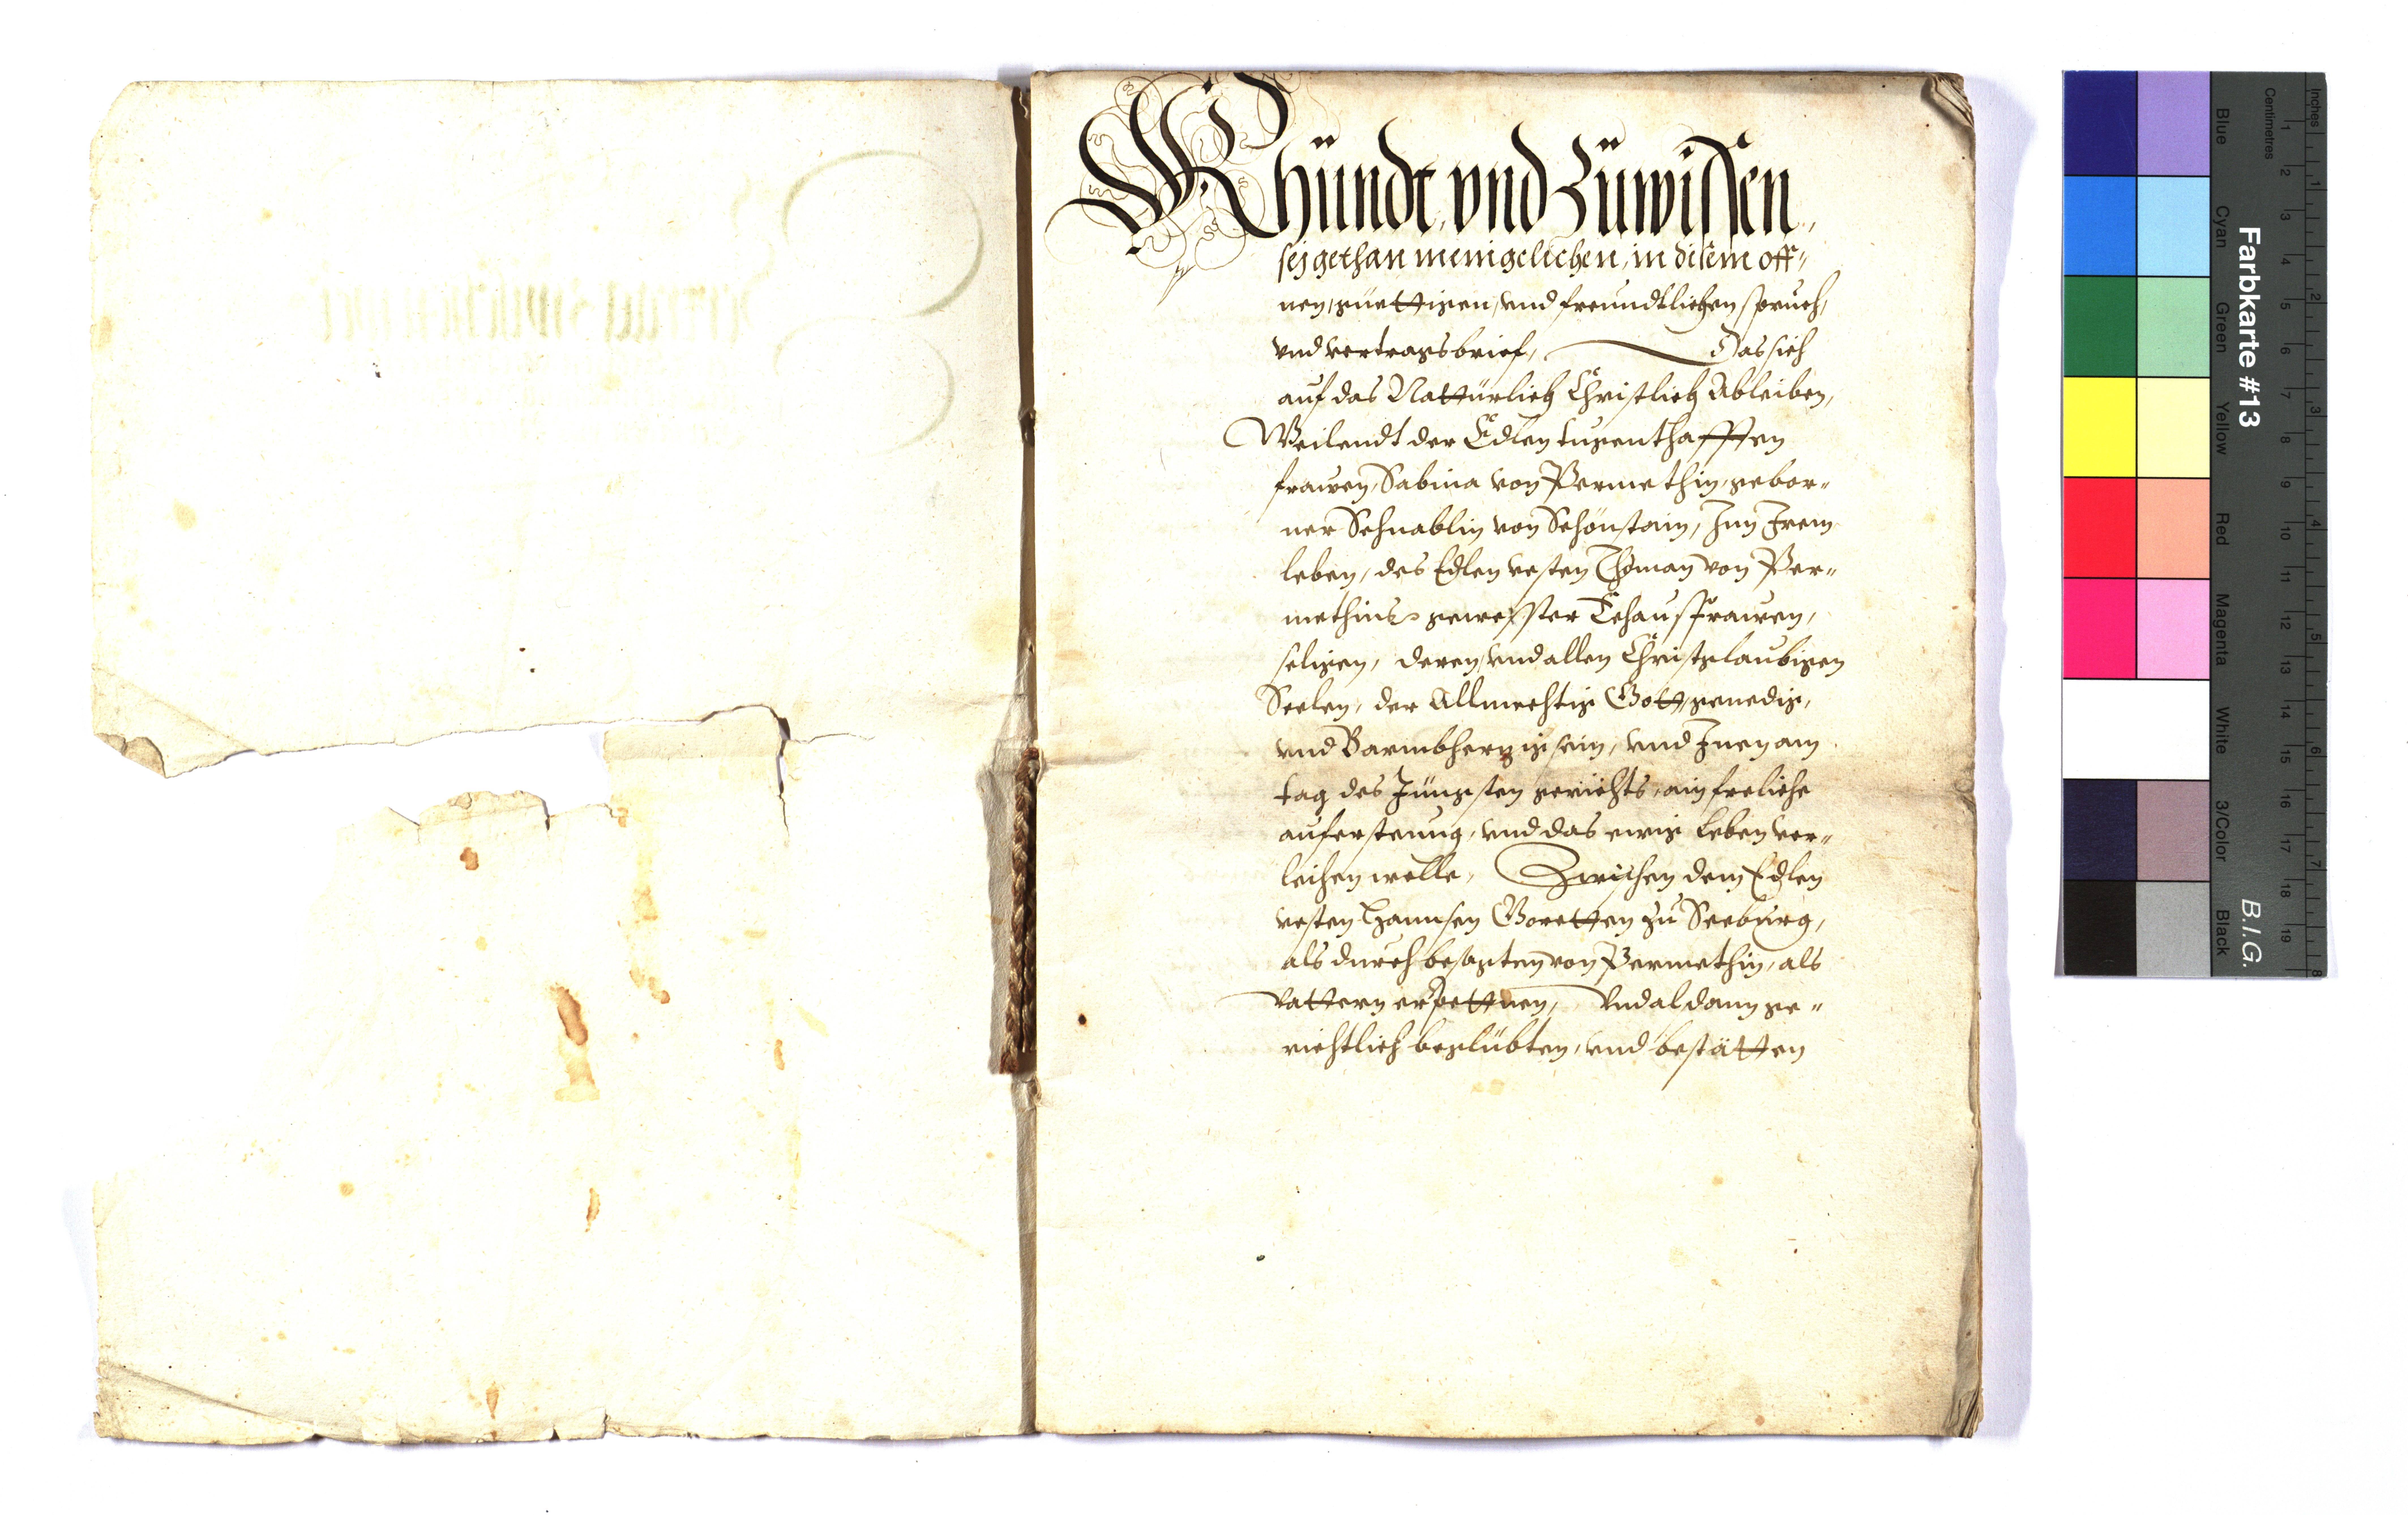 Khündt vnd Zůwissen,
sej gethan menigelichen, in disem off„
nen, güettigen, vnd freundtlichen spruch,
vnd vertragsbrief, Das sich
auf das Nattürlich Christlich Ableiben,
Weilendt der Edlen tugenthafften
frawen, Sabina von Permethin, gebor„
ner Schnablin von Schönstain, Inn Irem
leben, des Edlen vesten Thoman von Per„
methins gewesster Eehausfrawen,
seligen, deren, vnd allen Christglaubigen
Seelen, der Allmechtig Gott, genedig,
vnd Barmbhertzig sein, vnd Inen am
tag des Jüngsten gerichts, ain freliche
aufersteung, vnd das ewig Leben ver„
leihen welle, Zwischen dem Edlen
vesten Hannsen Goretten zu Seeburg,
als durch besagten von Permethin, als
Vattern erpettnen, Vnd aldann ge„
richtlich beglübten, vnd bestätten
Farbkarte #13
B.I.G.
Inches
Centimetres
Blue
Cyan
Green
Yellow
Red
Magenta
White
3/Color
Black